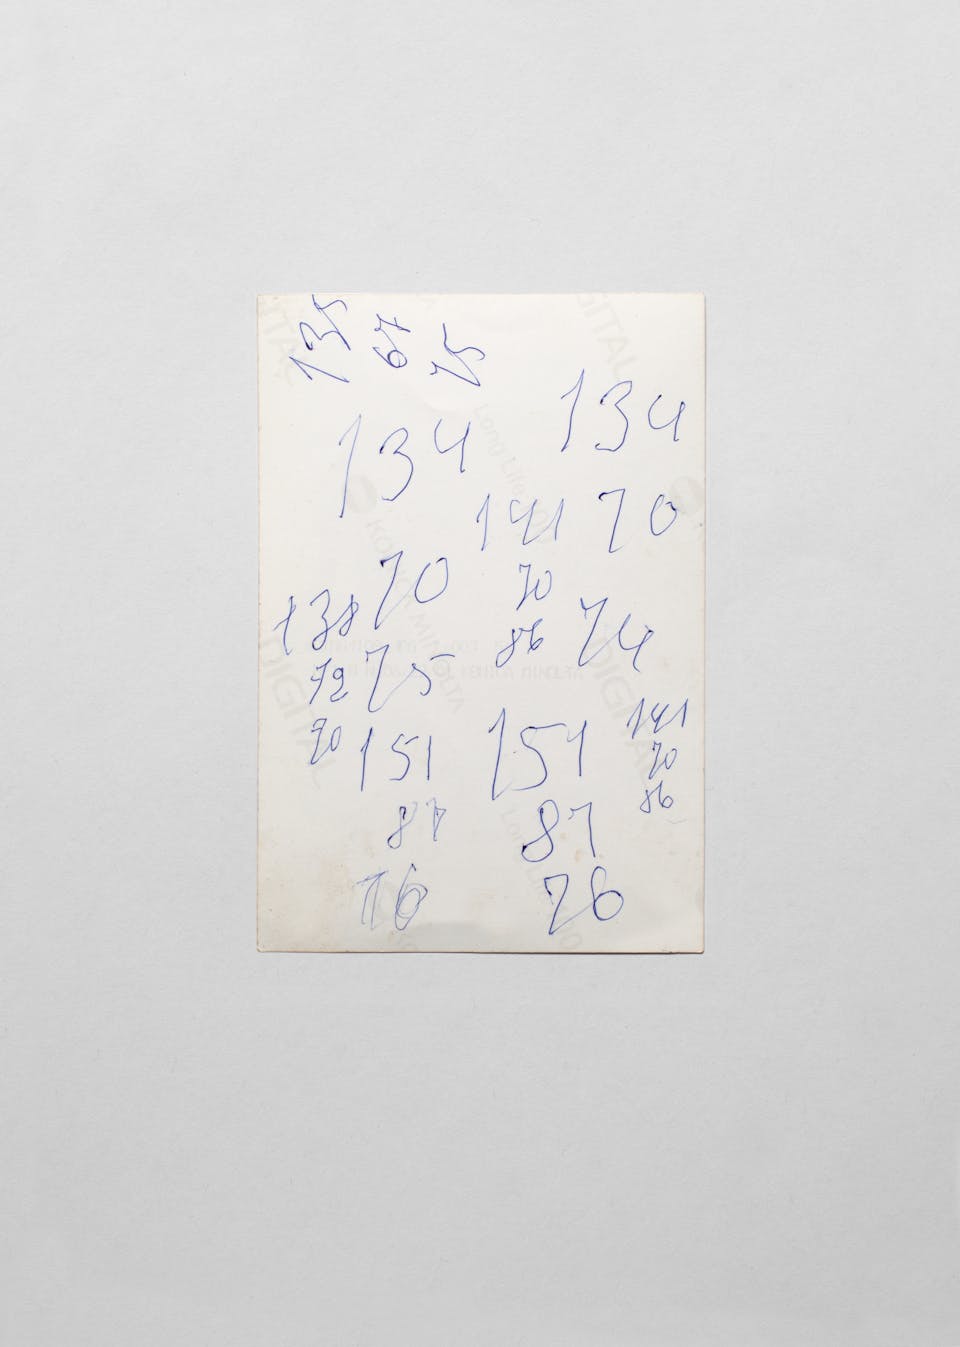 135 67 75
134
134
141 70
70
70
138
86 74
72 75
141
70 151 151
70
86
87 87
76 76
DIGITAL
DIGITAL
DIGITAL
Long Life